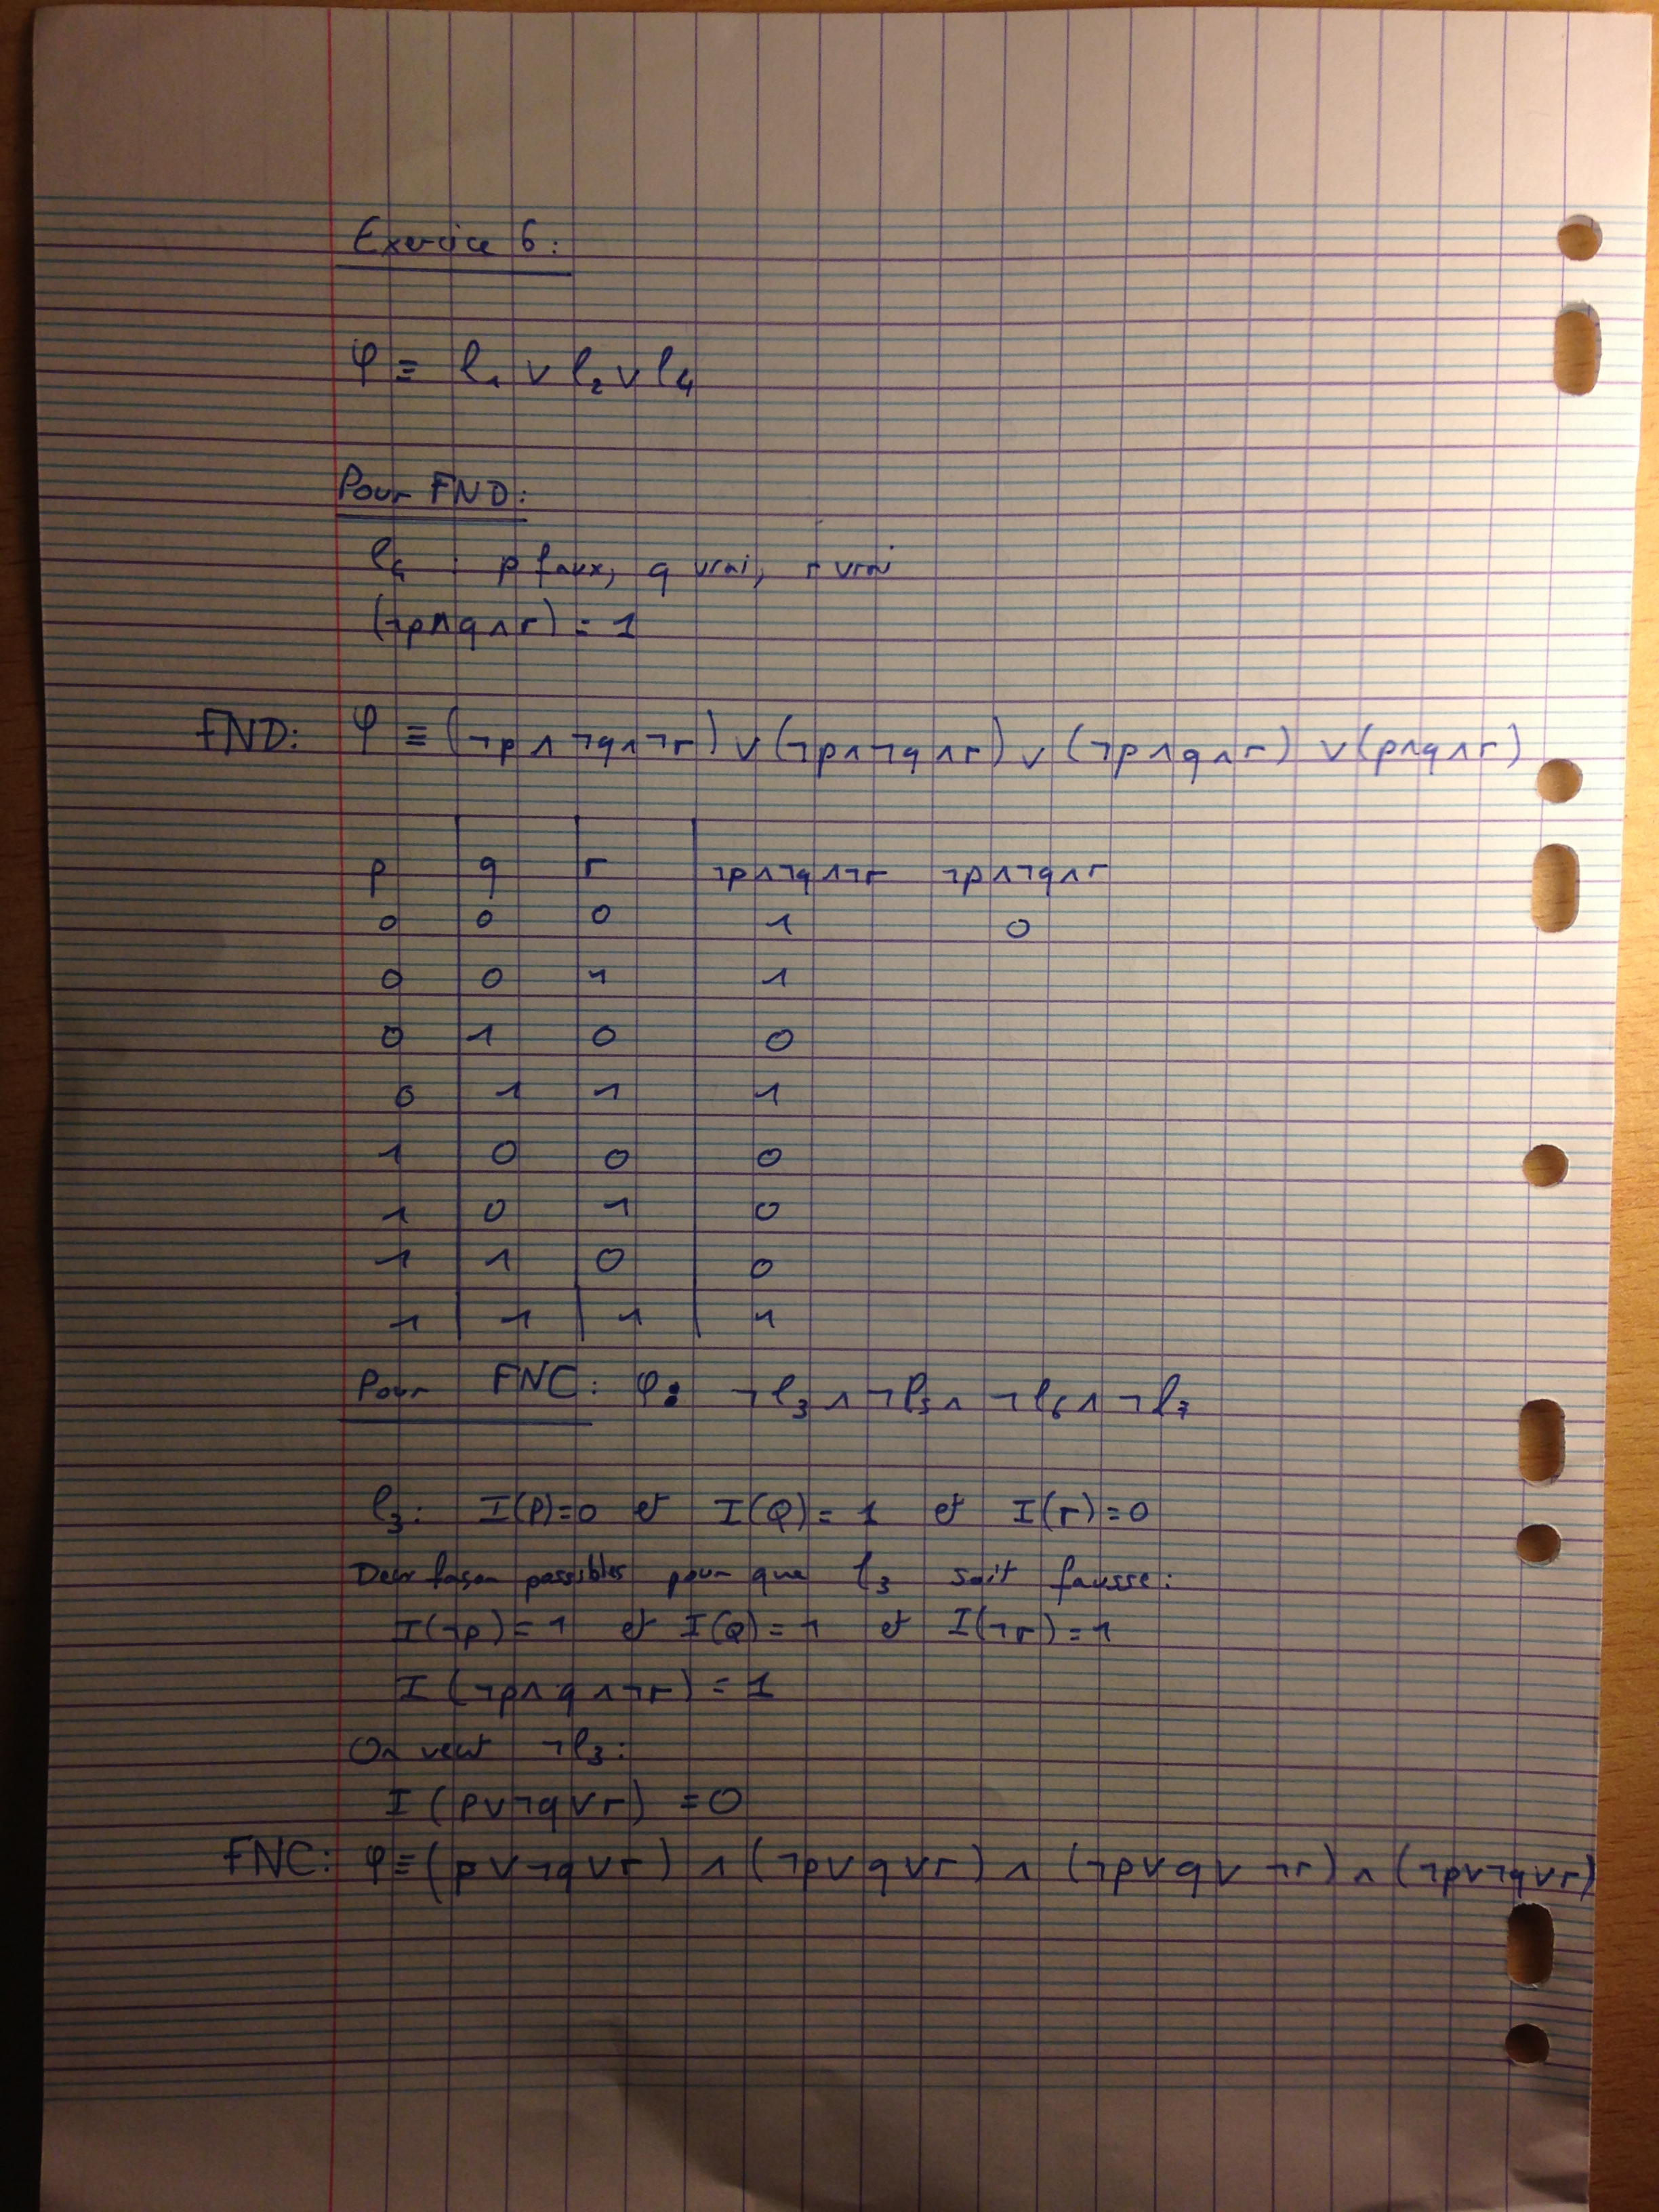 Exercice 6:
φ ≡ l₁ ∨ l₂ ∨ l₄
Pour FND:
l₄ : p faux, q vrai, r vrai
(¬p∧q∧r) = 1
FND: φ ≡ (¬p∧¬q∧¬r) ∨ (¬p∧¬q∧r) ∨ (¬p∧q∧r) ∨ (p∧q∧r)
p q r ¬p∧¬q∧¬r ¬p∧¬q∧r
0 0 0 1 0
0 0 1 1
0 1 0 0
0 1 1 1
1 0 0 0
1 0 1 0
1 1 0 0
1 1 1 1
Pour FNC: φ: ¬l₃ ∧ ¬l₅ ∧ ¬l₆ ∧ ¬l₇
l₃: I(p)=0 et I(Q)=1 et I(r)=0
façon possibles pour que l₃ soit fausse:
I(¬p)=1 et I(Q)=1 et I(¬r)=1
I(¬p∧q∧¬r) = 1
On veut ¬l₃:
I(p∨¬q∨r) = 0
FNC: φ≡(p∨¬q∨r) ∧ (¬p∨q∨r) ∧ (¬p∨q∨¬r) ∧ (¬p∨¬q∨r)